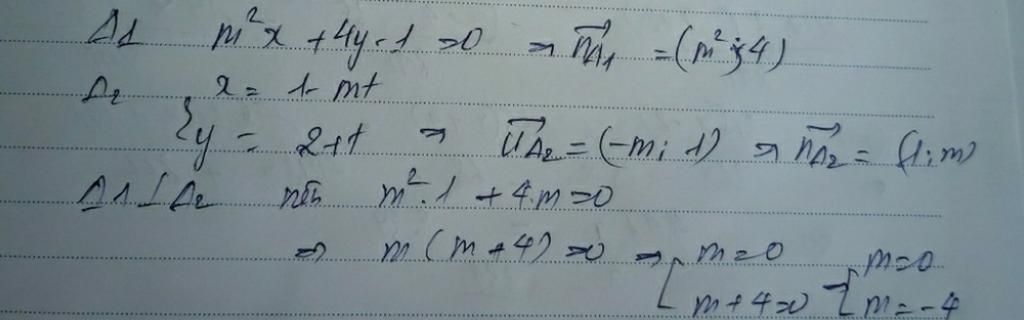 Δ1 m²x + 4y - 1 = 0 ⇒ n⃗Δ1 = (m²; 4)
Δ2 { x = 1 - mt
y = 2 + t ⇒ u⃗Δ2 = (-m; 1) ⇒ n⃗Δ2 = (1; m)
Δ1 ⊥ Δ2 nên m².1 + 4.m = 0
⇒ m(m + 4) = 0 ⇒ [ m = 0 ⇒ [ m = 0
m + 4 = 0 m = -4